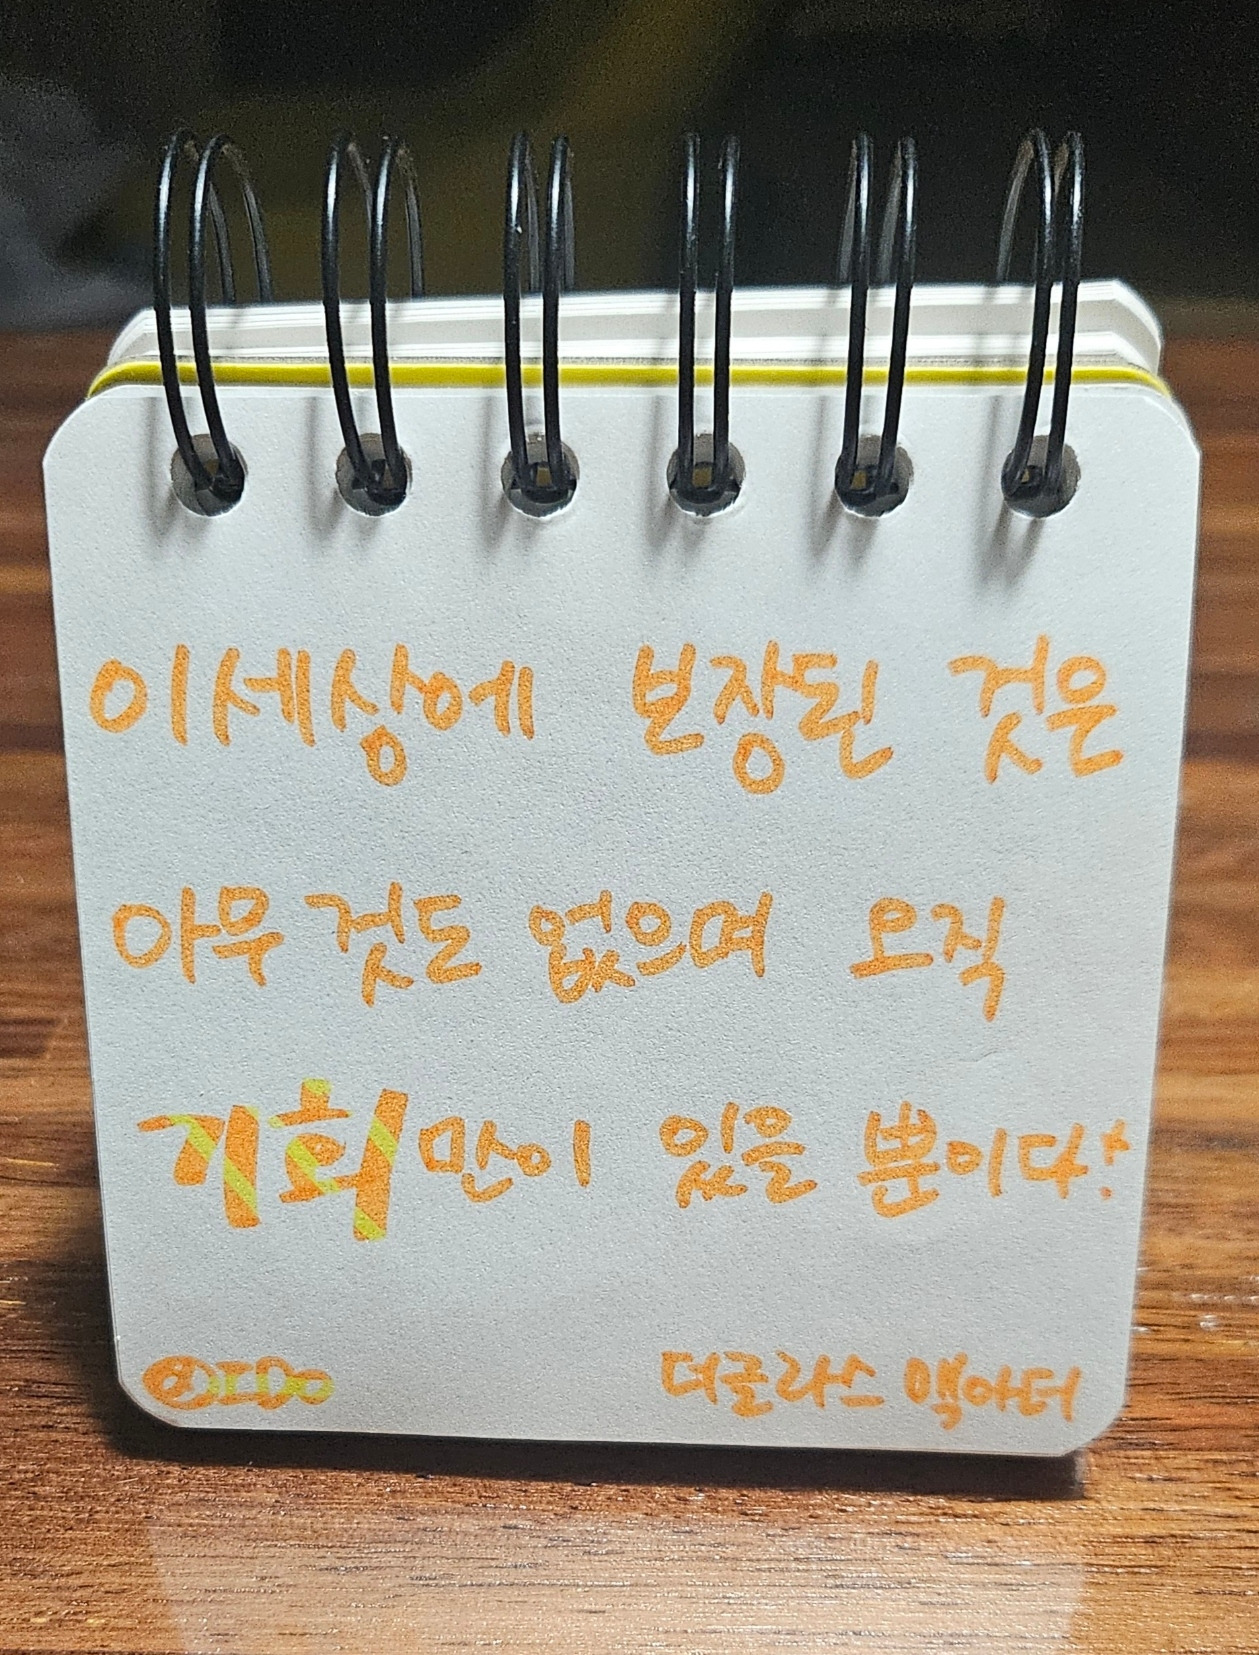 이세상에 보장된 것은
아무것도 없으며 오직
기회만이 있을 뿐이다!
더글라스 맥아더